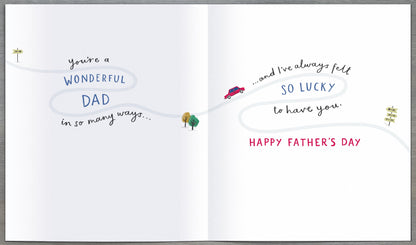 you're a
WONDERFUL
DAD
in so many ways...
...and I've always felt
SO LUCKY
to have you.
HAPPY FATHER'S DAY